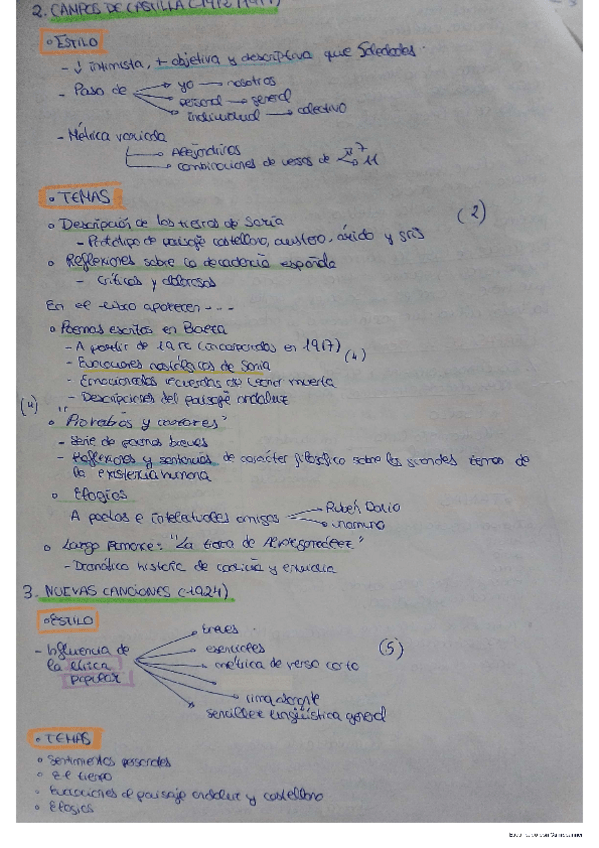 2. CAMPOS DE CASTILLA (1912/1917)
• ESTILO
- ↓ intimista, + objetiva y descriptiva que Soledades.
- Paso de → yo → nosotros
→ personal → general
→ individual → colectivo
- Métrica variada
→ Alejandrinos
→ combinaciones de versos de 7 11
• TEMAS
(2)
o Descripción de las tierras de Soria
- Prototipo de paisaje castellano, austero, árido y gris
o Reflexiones sobre la decadencia española
- Críticas y dolorosas
En el libro aparecen - - -
o Poemas escritos en Baeza
- A partir de 1912 (incorporados en 1917) (4)
- Evocaciones nostálgicas de Soria
- Emocionados recuerdos de Leonor muerta
- Descripciones del paisaje andaluz
(4)
o "Proverbios y cantares"
- Serie de poemas breves
- Reflexiones y sentencias de carácter filosófico sobre los grandes temas de
la existencia humana
o Elogios
A poetas e intelectuales amigos → Rubén Darío
→ Unamuno
o Largo romance: "La tierra de Alvargonzález"
- Dramática historia de codicia y envidia
3. NUEVAS CANCIONES (1924)
• ESTILO
- Influencia de
la lírica
popular
→ breves
→ esenciales
→ métrica de verso corto
→ rima asonante
→ sencillez lingüística general
(5)
• TEMAS
o Sentimientos personales
o El tiempo
o Evocaciones del paisaje andaluz y castellano
o Elogios